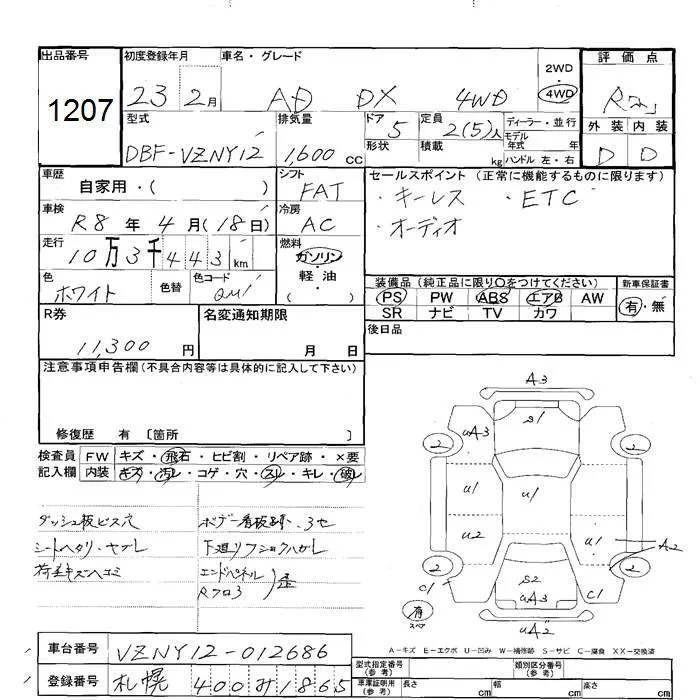 出品番号 初度登録年月 車名・グレード 2WD ・ 4WD 評価点
1207 23 2月 AD DX 4WD
外装 内装
D D
型式 排気量 ドア 5 定員 2(5)人 ディーラー・並行
DBF-VZNY12 1,600cc 形状 積載 kg モデル年式 年 ハンドル 左・右
車歴 自家用・( ) シフト FAT セールスポイント (正常に機能するものに限ります)
・キーレス ・ETC
車検 R8年 4月(18日) 冷房 AC ・オーディオ
走行 10万3千443km 燃料 ガソリン・軽油 ( )
色 ホワイト 色替 色コード QM1
装備品 (純正品に限り○をつけてください) 新車保証書
PS PW ABS エアB AW 有・無
SR ナビ TV カワ
R券 11,300円 名変通知期限 月 日 後日品
注意事項申告欄 (不具合内容等は具体的に記入して下さい)
修復歴 有 〔箇所 〕
検査員 FW キズ・飛石・ヒビ割・リペア跡・×要
記入欄 内装 キズ・汚レ・コゲ・穴・スレ・キレ・破レ
ダッシュ板ビス穴 ボデー看板跡、ヨセ
シートヘタリ・ヤブレ 下廻リフショクハガレ
荷室キズヘコミ エンドパネル
Rフロア 歪
A3
S1
uA3
2 2
u1 u1
u2 u1 A2
2 2
C1 S2 C1
uA3
有 スペア uA2
A-キズ E-エクボ U-凹み W-補修跡 S-サビ C-腐食 XX-交換済
車台番号 VZNY12-012686
登録番号 札幌 400 み 1865
型式指定番号 (参考) 類別区分番号 (参考)
車庫証明用 (参考) 長さ cm 幅 cm 高さ cm